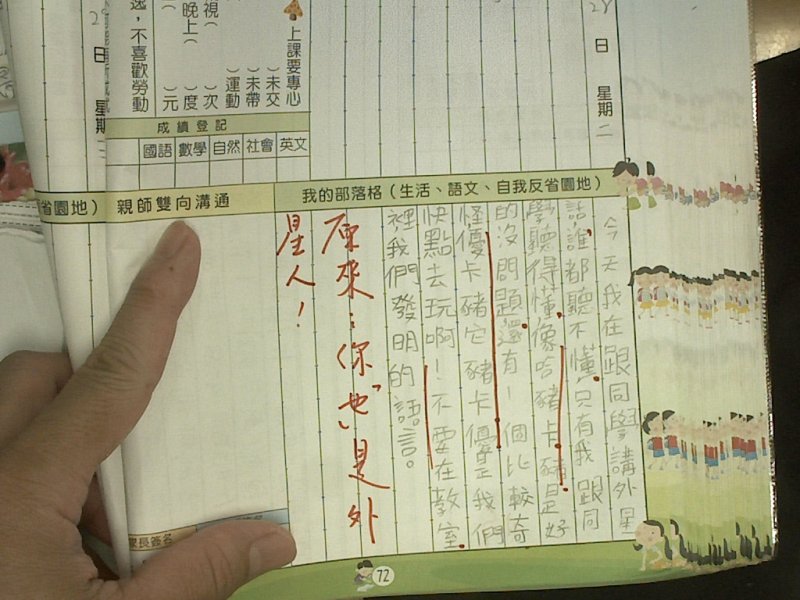 28
日
星期二
上課要專心
）未交
）未帶
）運動
）次
）度
）元
視（
晚上（
逸，不喜歡勞動
28
日
星期
成績登記
國語 數學 自然 社會 英文
我的部落格（生活、語文、自我反省園地）
親師雙向溝通
省園地）
今天我在跟同學講外星
話，誰都聽不懂，只有我跟同
學聽得懂，像哈豬卡豬是好
的沒問題，還有一個比較奇
怪優卡豬它豬卡優是我們
快點去玩啊！不要在教室
裡我們發明的語言。
原來：你也是外
星人！
家長簽名
72